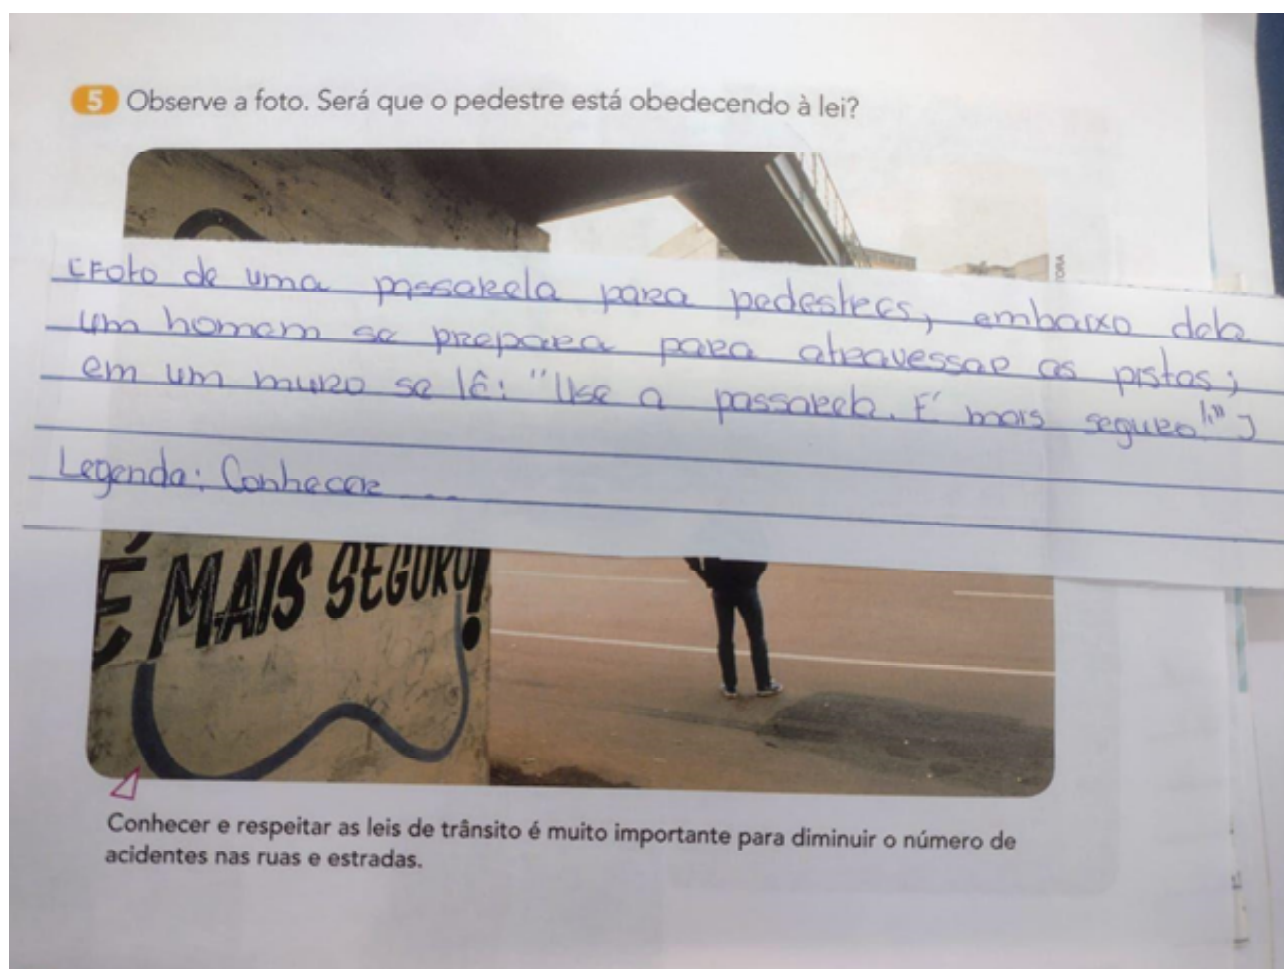 5 Observe a foto. Será que o pedestre está obedecendo à lei?
TORA
[Foto de uma passarela para pedestres, embaixo dela
um homem se prepara para atravessar as pistas;
em um muro se lê: "Use a passarela. É mais seguro!"]
Legenda: Conhecer...
É MAIS SEGURO!
Conhecer e respeitar as leis de trânsito é muito importante para diminuir o número de
acidentes nas ruas e estradas.